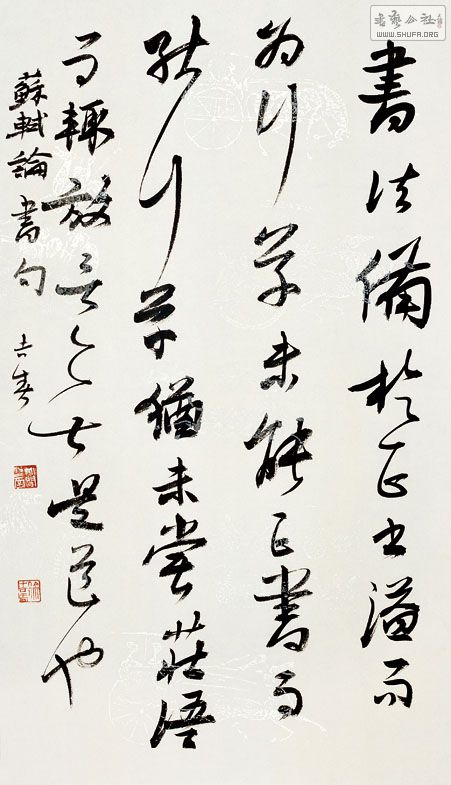 書法備於正书溢而
為行草未能正書而
能行草猶未嘗莊語
而輒放言無是道也
蘇軾論書句 吉春
書藝公社
WWW.SHUFA.ORG